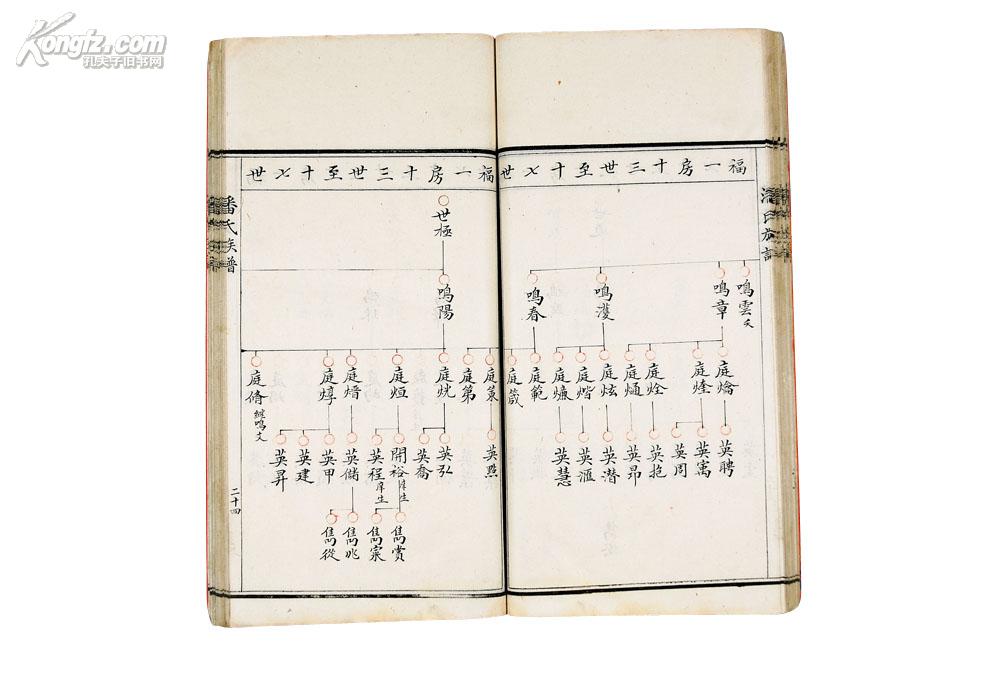 Kongfz.com
孔夫子旧书网
福一房十三世至十七世
鳴雲 夭
鳴章
鳴濩
鳴春
庭爚
庭煃
庭烇
庭熥
庭炫
庭熑
庭範
庭箴
英聘
英寓
英周
英抱
英昂
英潛
英滙
英慧
福一房十三世至十七世
世極
鳴陽
庭策
庭第
庭烑
庭烜
庭熸
庭焞
庭脩 繼鳴文
英點
英弘
英喬
開裕 庠生
英程 庠生
英儲
英甲
英建
英昇
雋賞
雋宗
雋兆
雋從
潘氏族譜
二十四